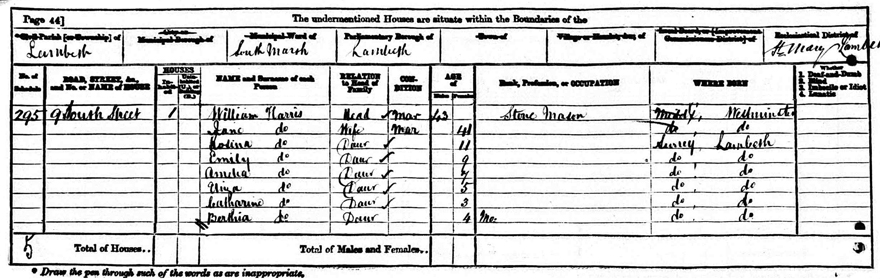 Page 44]
The undermentioned Houses are situate within the Boundaries of the
Civil Parish [or Township] of
Municipal Borough of
Municipal Ward of
Parliamentary Borough of
Town of
Village or Hamlet, &c., of
Local Board, or [Improvement Commissioners District] of
Ecclesiastical District of
Lambeth South Marsh Lambeth St Mary Lambeth
No. of Schedule
ROAD, STREET, &c., and No. or NAME of HOUSE
HOUSES
NAME and Surname of each Person
RELATION to Head of Family
CONDITION
AGE of
Males Females
Rank, Profession, or OCCUPATION
WHERE BORN
Whether
1. Deaf-and-Dumb
2. Blind
3. Imbecile or Idiot
4. Lunatic
295 9 South Street 1 William Harris Head Mar 43 Stone Mason Middx, Westminster
Jane do Wife Mar 41 do do
Rosina do Daur 11 Surrey, Lambeth
Emily do Daur 9 do do
Amelia do Daur 7 do do
Eliza do Daur 5 do do
Catharine do Daur 3 do do
Berthia do Daur 4 Mo. do do
5 Total of Houses..
Total of Males and Females..
* Draw the pen through such of the words as are inappropriate.